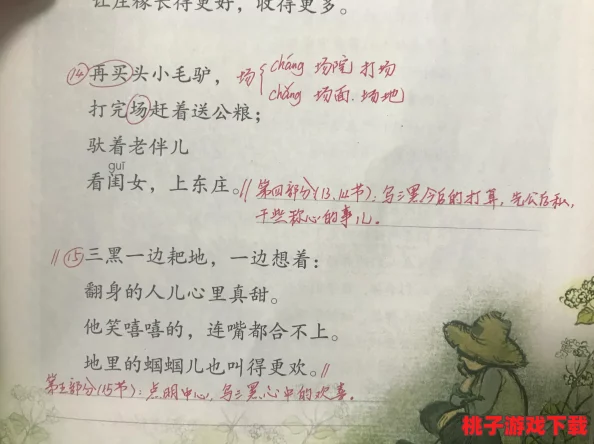 让庄稼长得更好，收得更多。
⑭再买头小毛驴，场{cháng 场院 打场
chǎng 场面、场地
打完场赶着送公粮；
驮着老伴儿
guī
看闺女，上东庄。//第四部分(13、14节)：乌三黑今后的打算，先公后私，
干些称心的事儿。
//⑮三黑一边耙地，一边想着：
翻身的人儿心里真甜。
他笑嘻嘻的，连嘴都合不上。
地里的蝈蝈儿也叫得更欢。//
第五部分(15节)：点明中心，乌三黑心中的欢喜。
桃子游戏下载